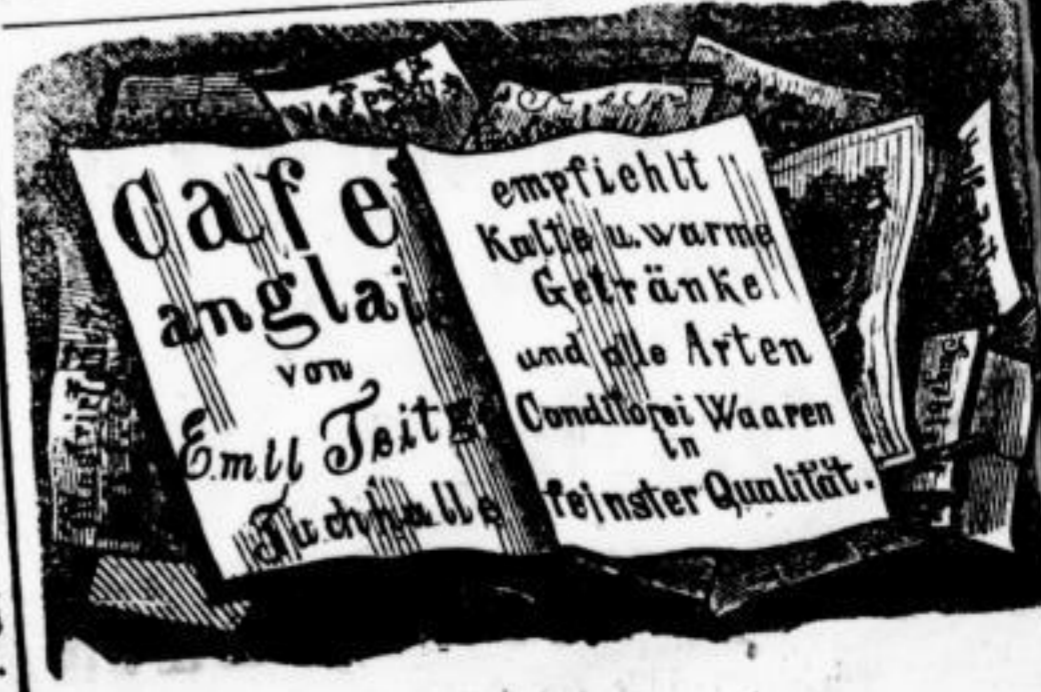 Cafe
anglai
von
Emil
Tuchhalle
empfiehlt
Kalte u. warme
Getränke
und alle Arten
Conditorei Waaren
in
feinster Qualität.